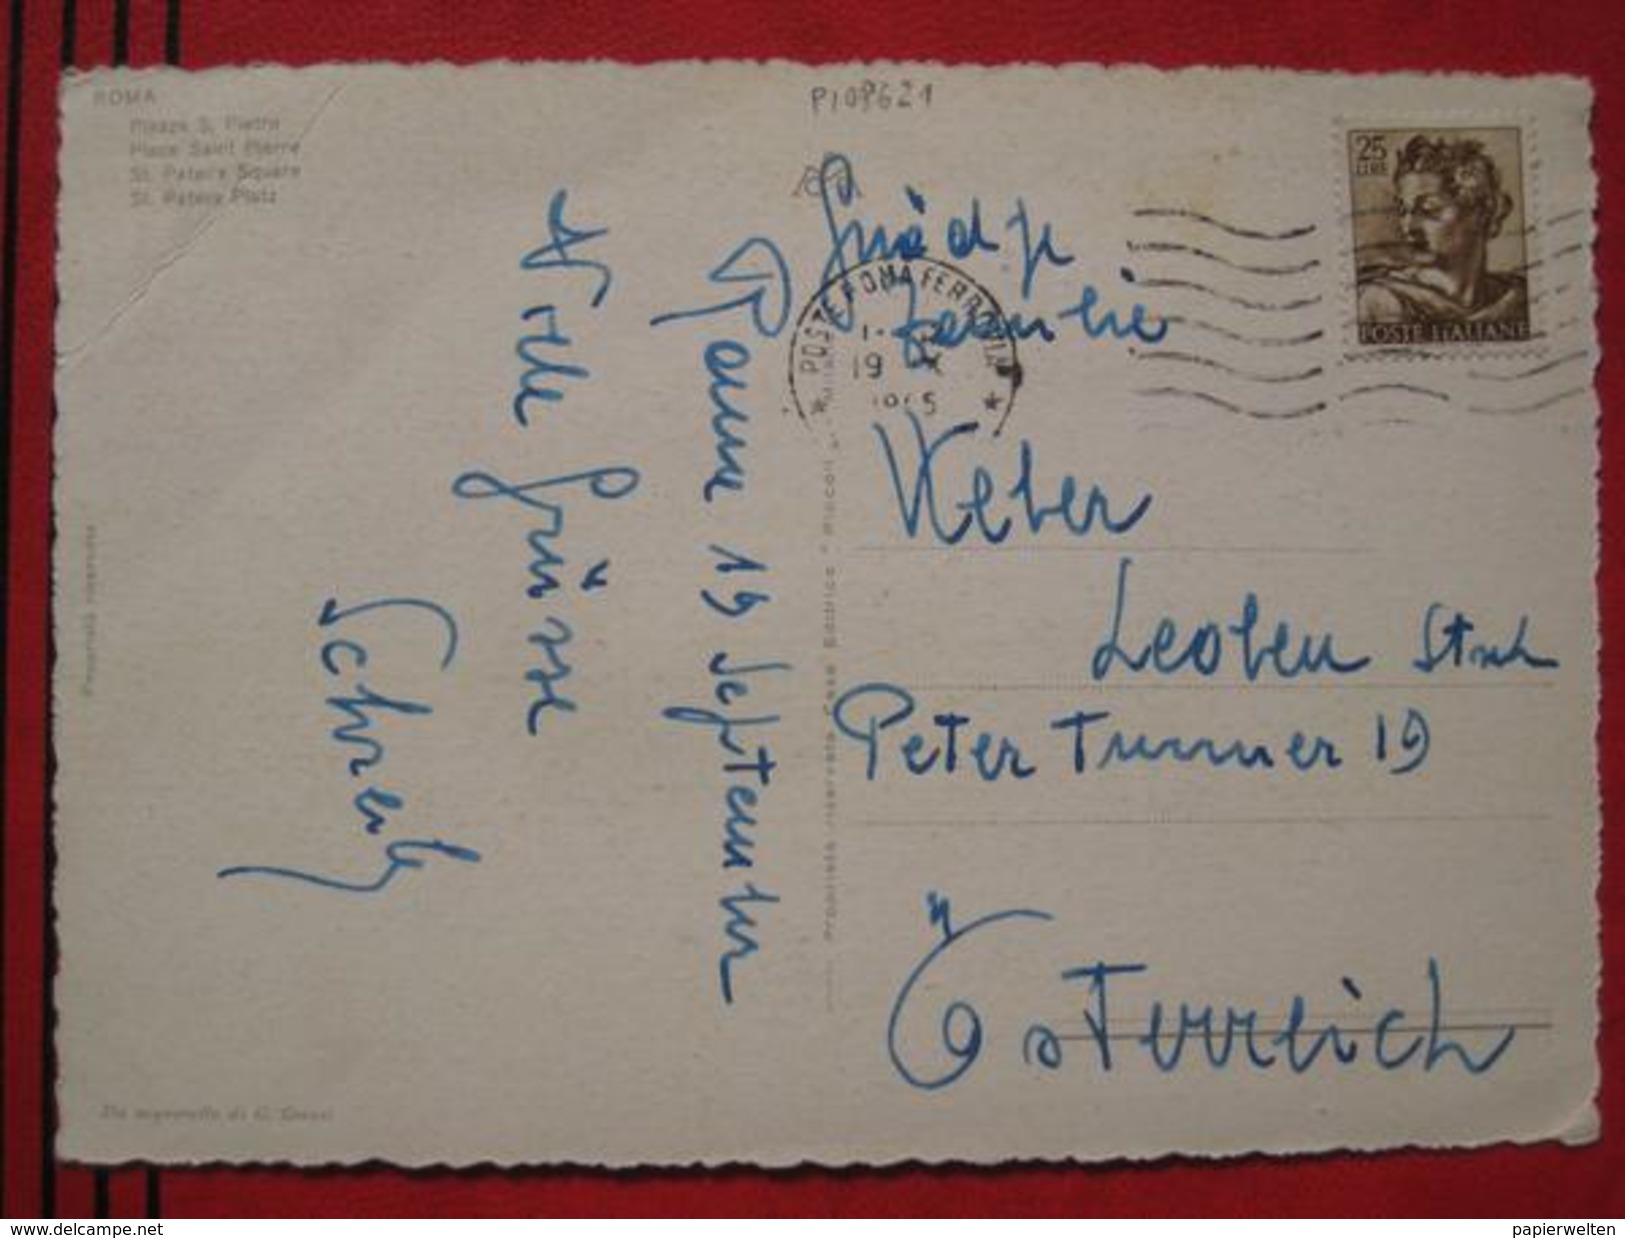 ROMA
Piazza S. Pietro
Place Saint Pierre
St. Peter's Square
St. Peters Platz
P108621
25
LIRE
POSTE ITALIANE
POSTE ROMA FERROVIA
19
1965
Familie
Weber
Leoben
Peter Tunner 19
Österreich
Rom 19 September
Viele Grüsse
Proprietà riservata
Proprietà riservata Casa Editrice
Da acquarello di
delcampe.net
papierwelten